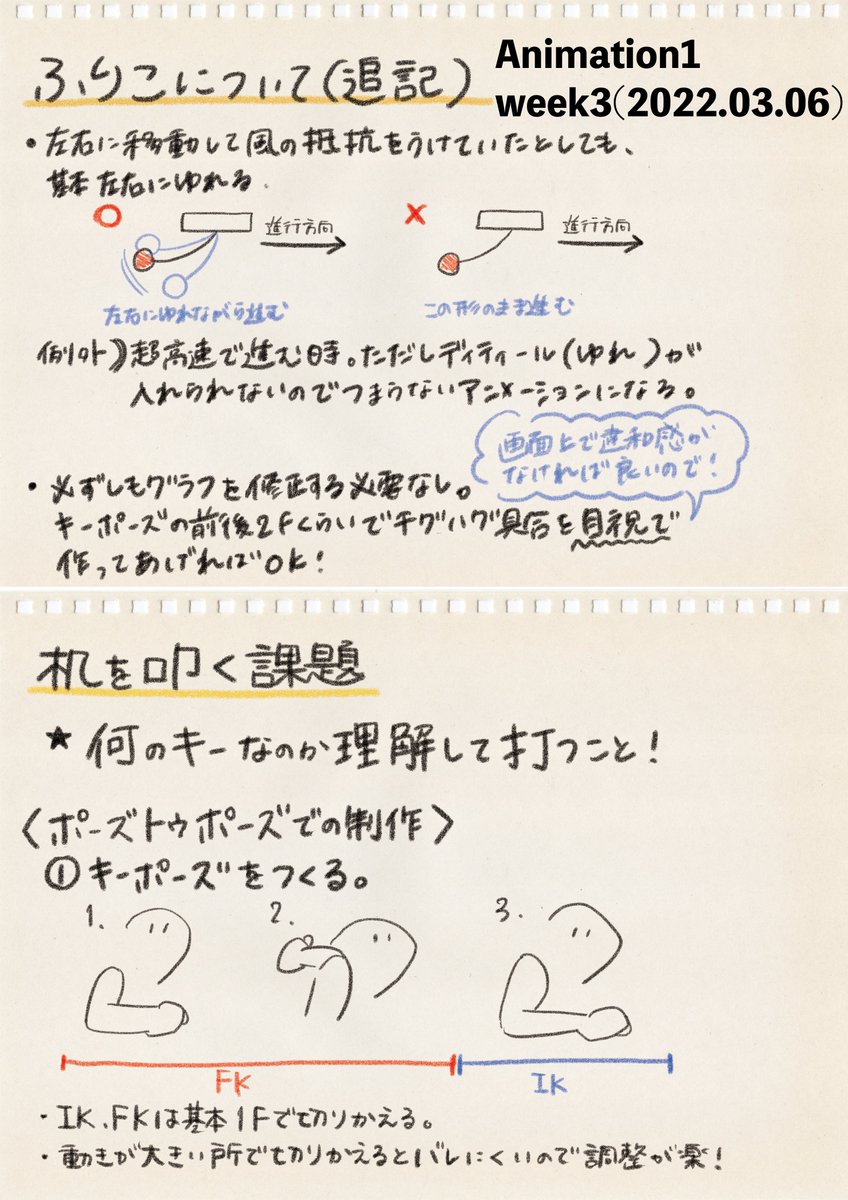 ふりこについて(追記)
Animation1
week3(2022.03.06)
・左右に移動して風の抵抗をうけていたとしても、
基本左右にゆれる.
○
進行方向
×
進行方向
左右にゆれながら進む
この形のまま進む
例外)超高速で進む時。ただしディティール(ゆれ)が
入れられないのでつまらないアニメーションになる。
画面上で違和感が
なければ良いので!
・必ずしもグラフを修正する必要なし。
キーポーズの前後2Fくらいでチグハグ具合を目視で
作ってあげればOK!
机を叩く課題
★何のキーなのか理解して打つこと!
〈ポーズトゥポーズでの制作〉
①キーポーズをつくる。
1.
2.
3.
FK
IK
・IK、FKは基本1Fで切りかえる。
・動きが大きい所で切りかえるとバレにくいので調整が楽!